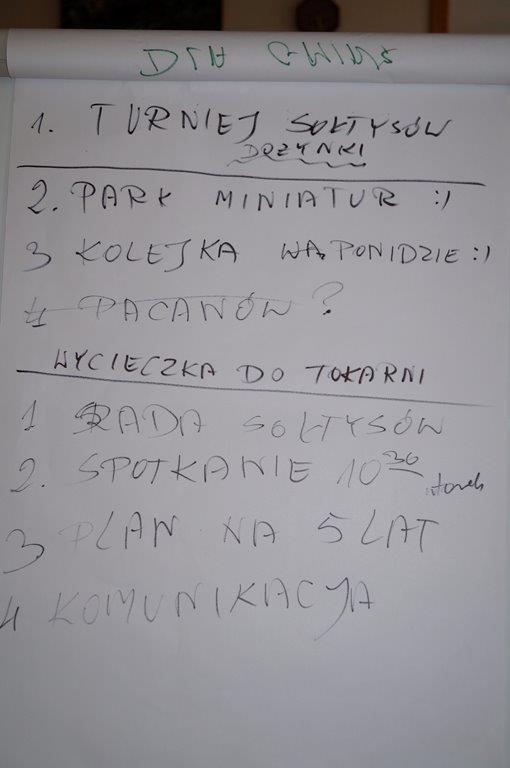 DLA GMINY
1. TURNIEJ SOŁTYSÓW
DOŻYNKI
2. PARK MINIATUR :)
3 KOLEJKA WĄ. PONIDZIE :)
4 PACANÓW ?
WYCIECZKA DO TOKARNI
1 RADA SOŁTYSÓW
2. SPOTKANIE 10 30
wtorek
3 PLAN NA 5 LAT
4 KOMUNIKACJA